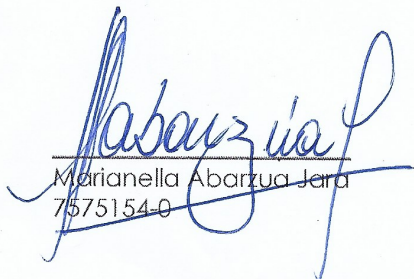 Mabarzúa J
Marianella Abarzua Jara
7575154-0